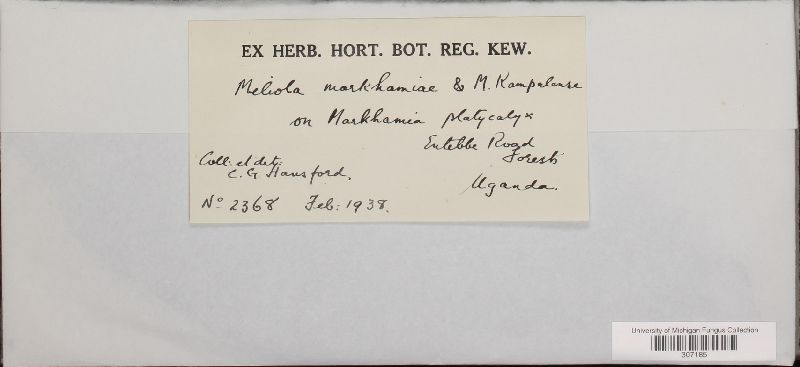 EX HERB. HORT. BOT. REG. KEW.
Meliola markhamiae & M. Kampalense
on Markhamia platycalyx
Entebbe Road
Forest
Uganda.
Coll. et det.
C. G Hansford.
No 2368 Feb: 1938.
University of Michigan Fungus Collection
307185